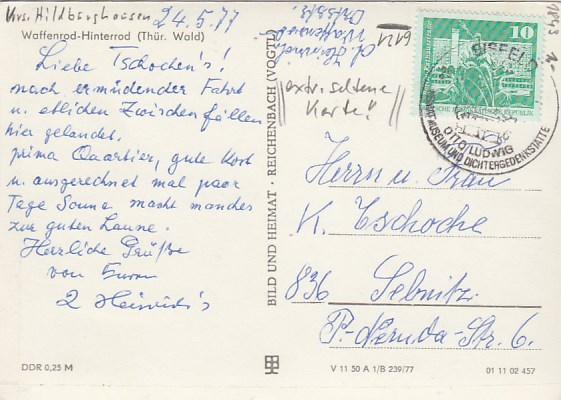 Krs. Hildburghausen 24.5.77
Waffenrod-Hinterrod (Thür. Wald)
Liebe Tschochen's!
nach ermüdender Fahrt
u. etlichen Zwischenfällen
hier gelandet.
prima Quartier, gute Kost
u. ausgerechnet mal paar
Tage Sonne macht manches
zur guten Laune.
Herzliche Grüße
von Euren
2 Heinrich's
DDR 0,25 M
BILD UND HEIMAT · REICHENBACH (VOGTL)
6121
extr. seltene
Karte!!
10
EISFELD
OTTO LUDWIG
MUSEUM UND DICHTERGEDENKSTÄTTE
Herrn u. Frau
K. Tschoche
836 Sebnitz
P.-Neruda-Str. 6.
V 11 50 A 1/B 239/77
01 11 02 457